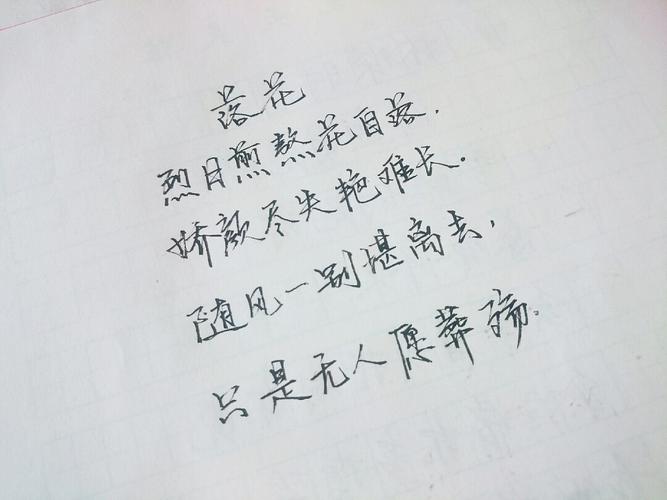 落花
烈日煎熬花自落，
娇颜尽失艳难长。
随风一别堪离去，
只是无人愿葬殇。